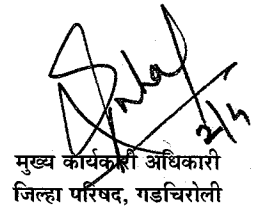 2/5
मुख्य कार्यकारी अधिकारी
जिल्हा परिषद, गडचिरोली